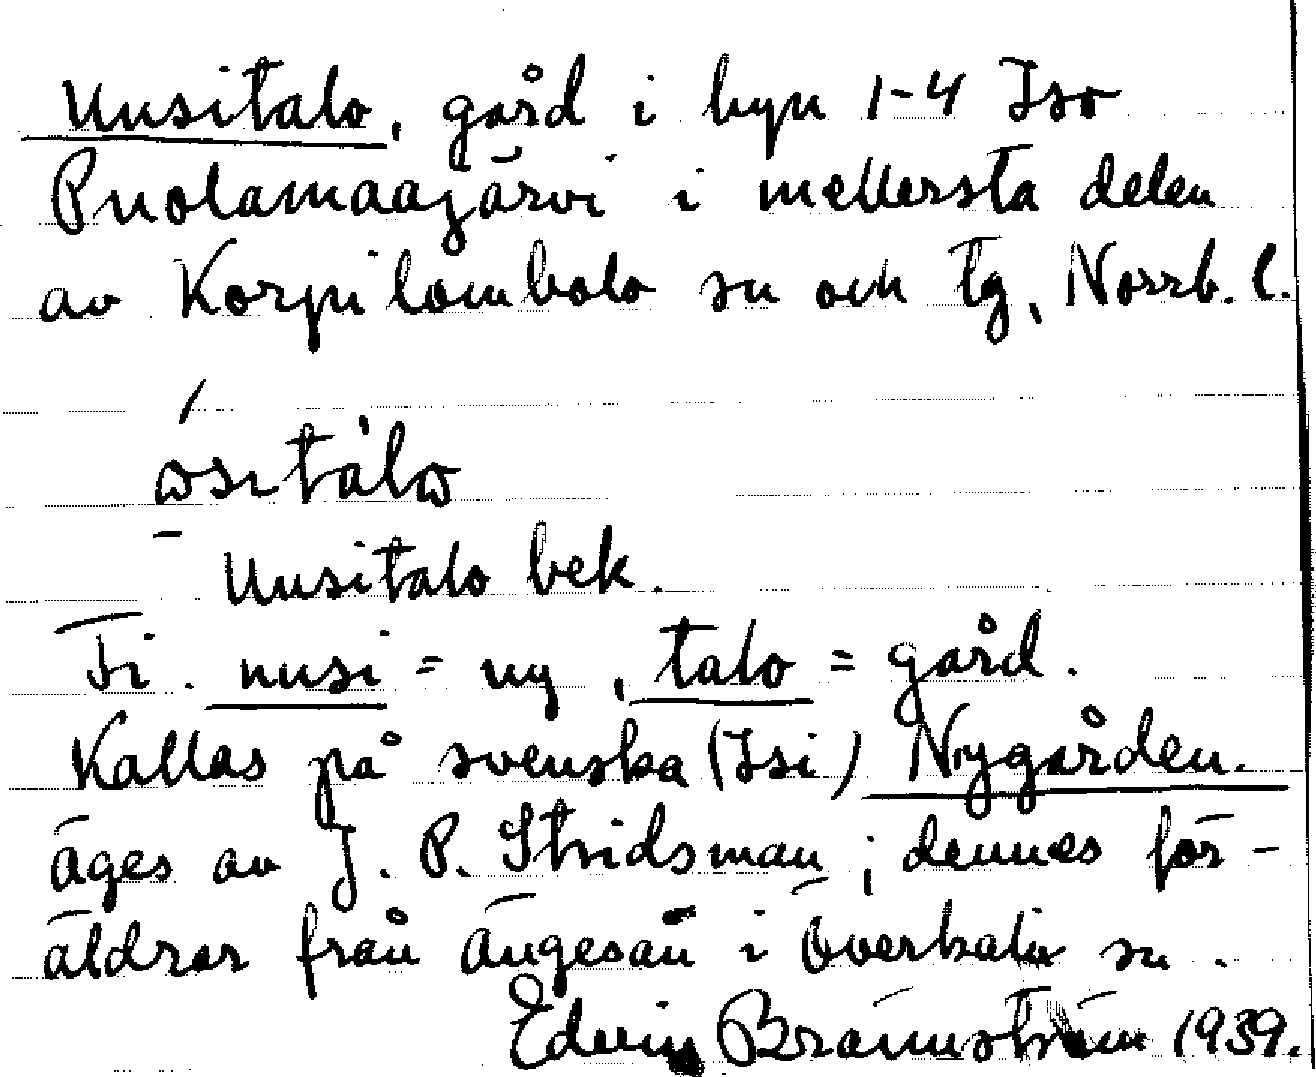 Uusitalo, gård i byn 1-4 Iso
Puolamaajärvi i mellersta delen
av Korpilombolo sn och tg, Norrb. l.
Uusitalo bek.
Fi. uusi = ny, talo = gård.
Kallas på svenska (Isi) Nygården.
äges av J. P. Stridsman; dennes för-
äldrar från Ängeså i Överkalix sn.
Edvin Brännström 1939.